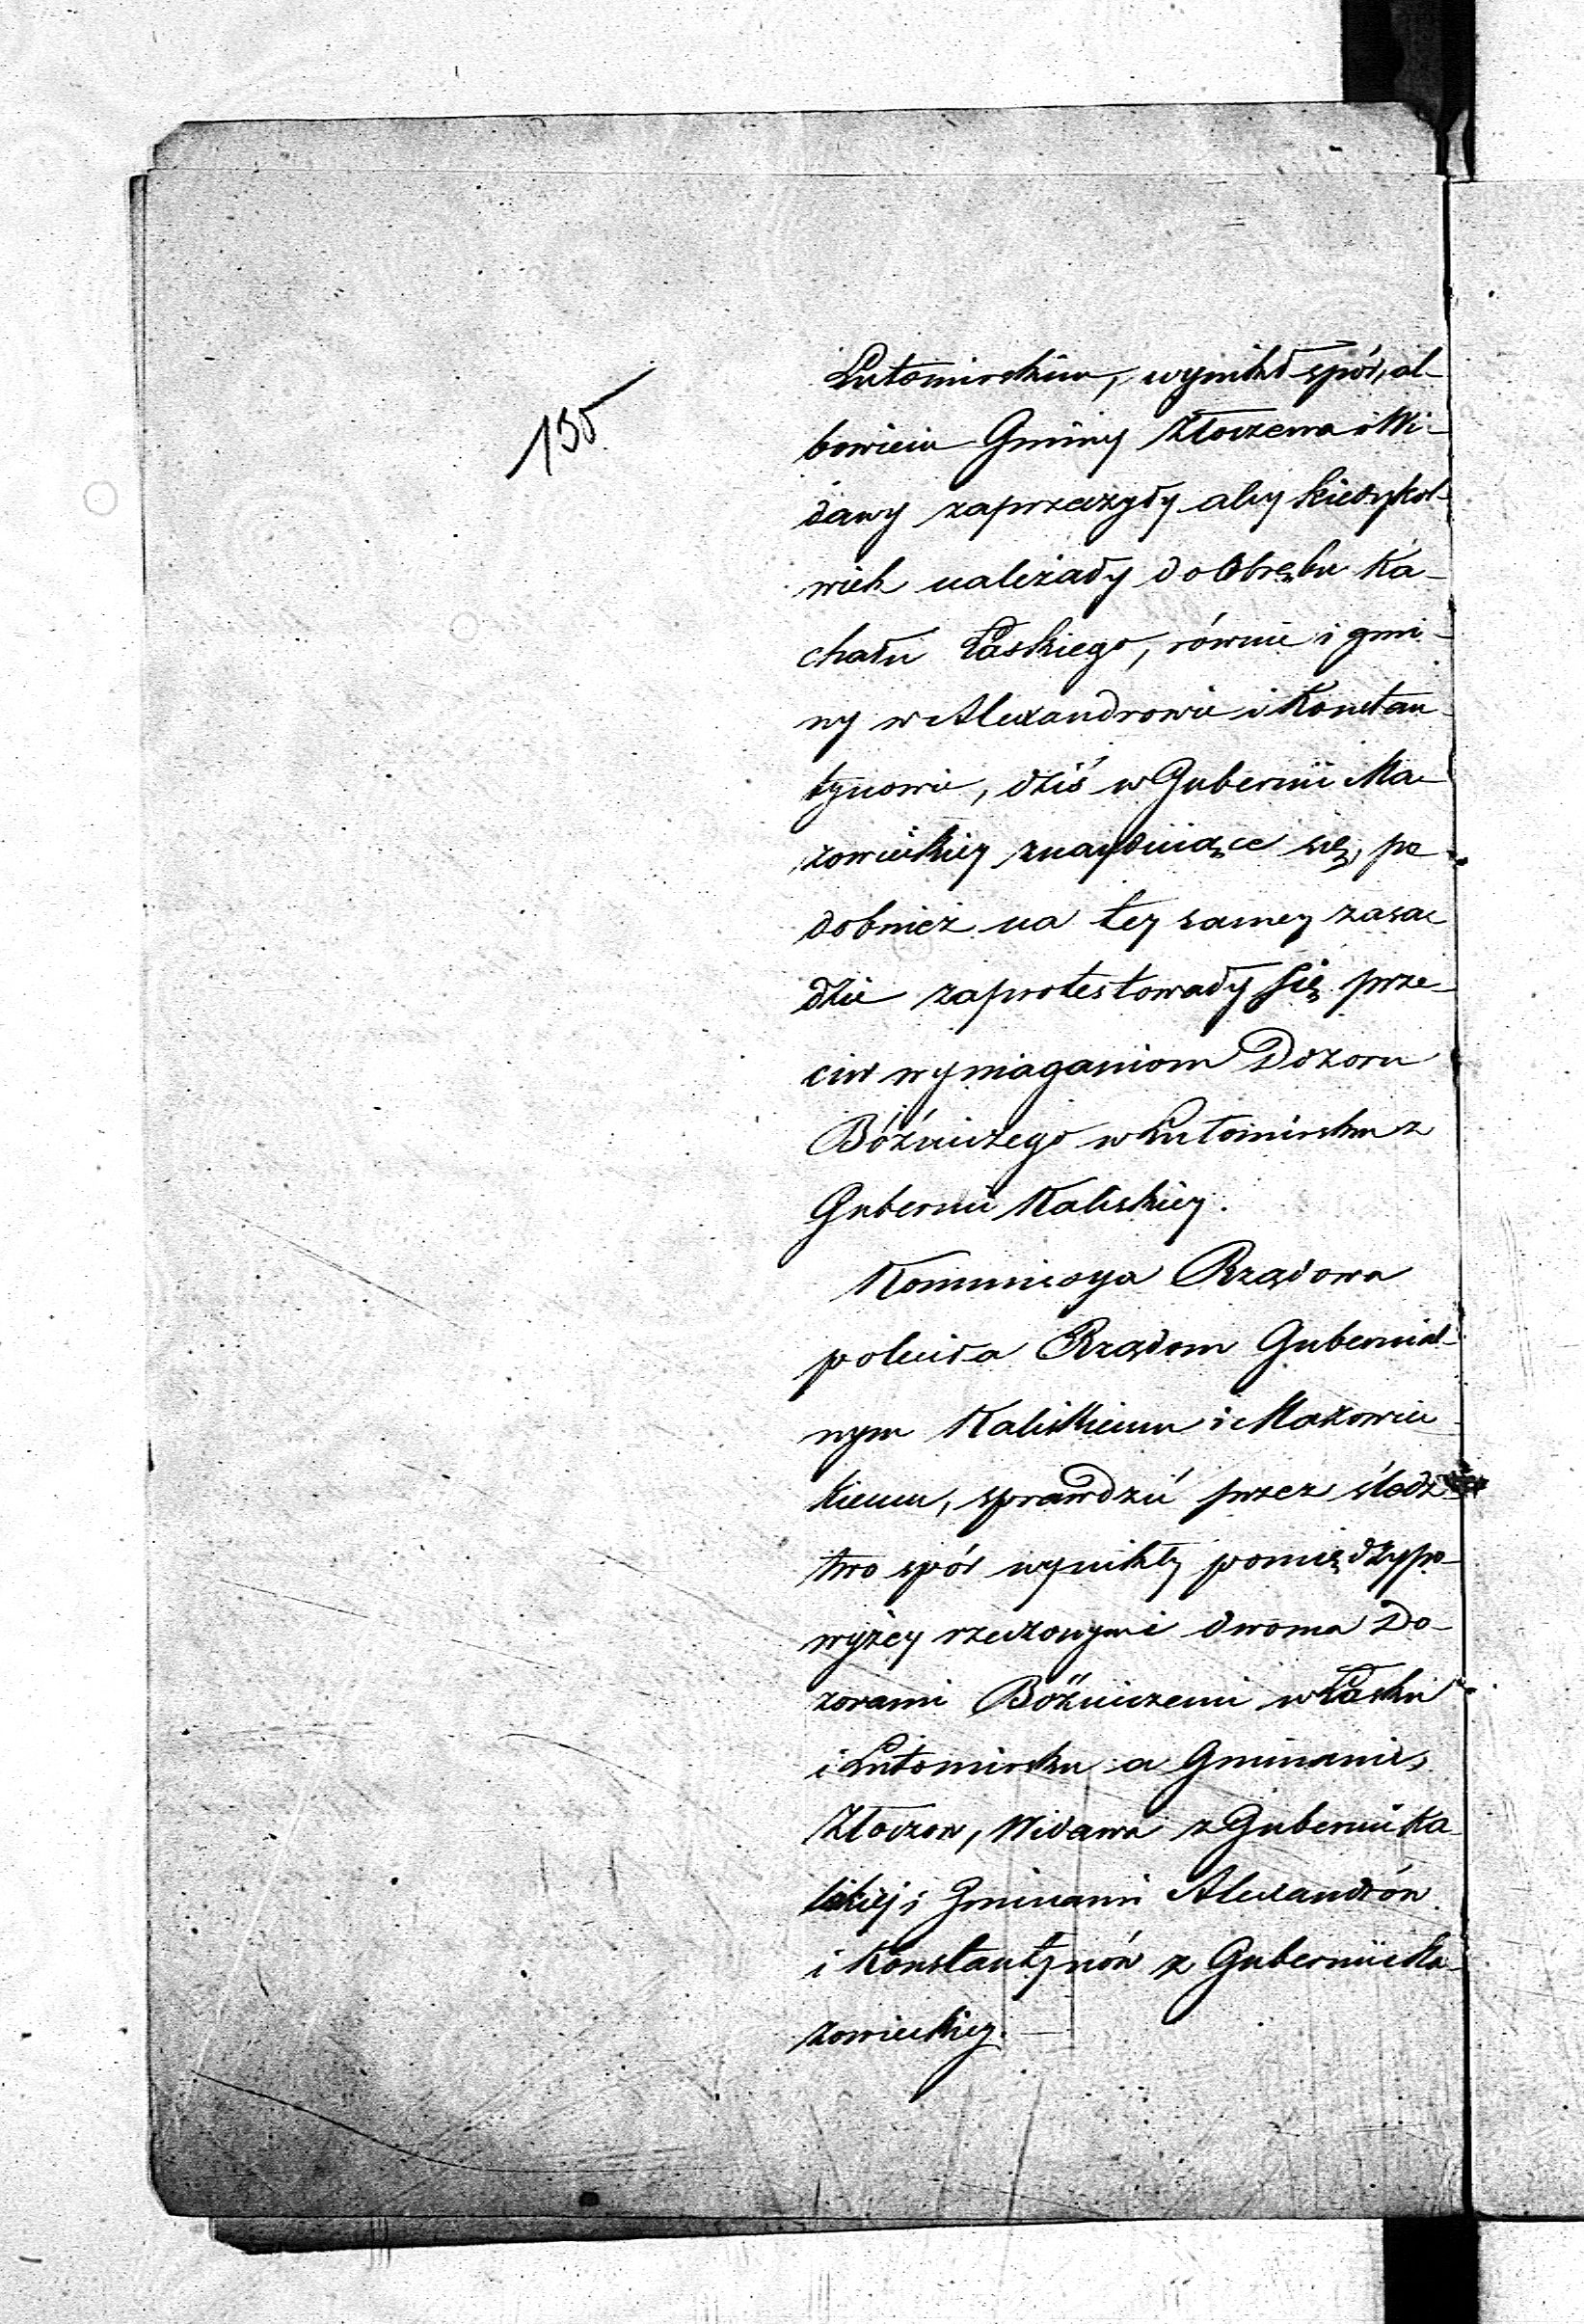 135
Lutomirskim, wynikł spór, al-
bowiem Gminy Złoczewa i Wi-
dawy zaprzeczyły aby kiedykol-
wiek należały do Obrębu Ka-
chału Łaskiego, równie i gmi-
ny w Alexandrowie i Konstan-
tynowie, dziś w Gubernii Ma-
zowieckiey znayduiące się, po-
dobnież na tey samey zasa-
dzie zaprotestowały się prze-
ciw wymaganiom Dozoru
Bóźniczego w Lutomirsku z
Gubernii Kaliskiey.
Kommissya Rządowa
poleciła Rządom Gubernial-
nym Kaliskiemu i Mazowiec-
kiemu, sprawdzić przez śledz-
two spór wynikły pomiędzy po-
wyżey rzeczonymi dwoma Do-
zorami Bóźniczemi w Łasku
i Lutomirsku a Gminami
Złoczew, Widawa z Gubernii Ka-
liskiej i Gminami Alexandrów
i Konstantynów z Gubernii Ma-
zowieckiey. —